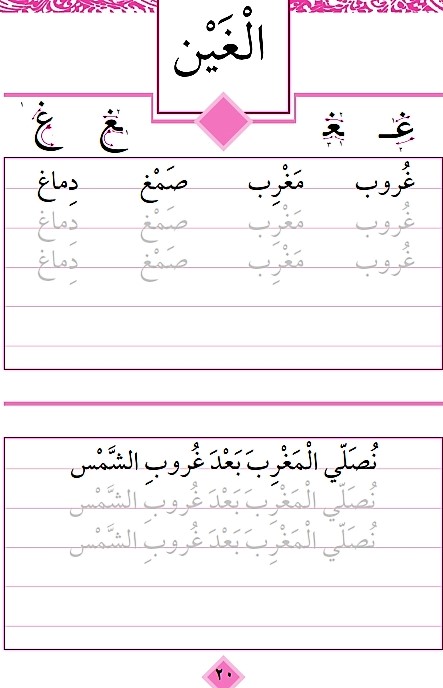 الْغَيْن
غـ ـغـ ـغ غ
غُروب مَغْرِب صَمْغ دِماغ
غُروب مَغْرِب صَمْغ دِماغ
غُروب مَغْرِب صَمْغ دِماغ
نُصَلّي الْمَغْرِبَ بَعْدَ غُروبِ الشَّمْس
نُصَلّي الْمَغْرِبَ بَعْدَ غُروبِ الشَّمْس
نُصَلّي الْمَغْرِبَ بَعْدَ غُروبِ الشَّمْس
٢٠